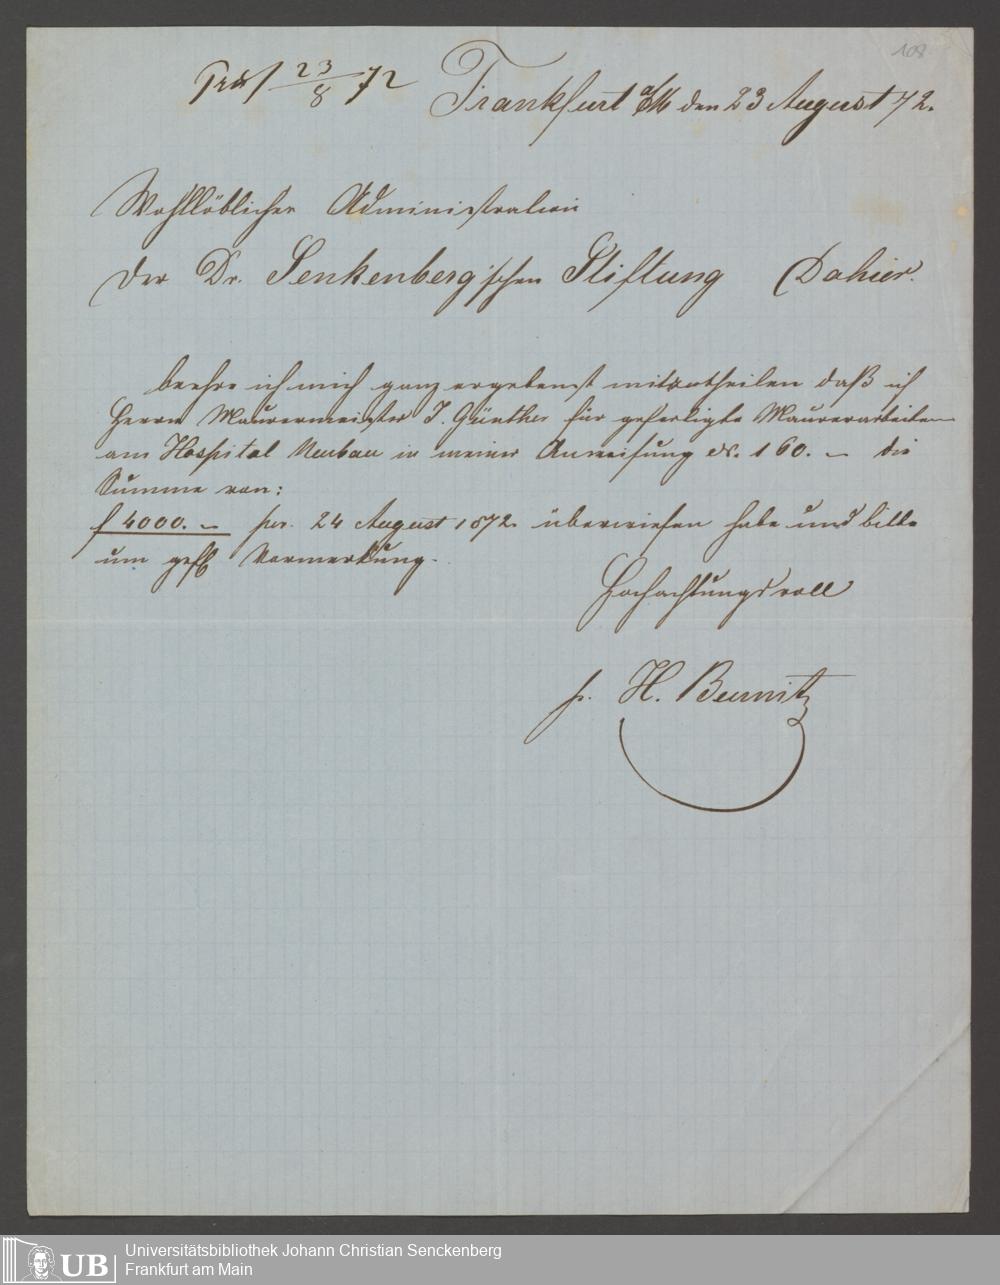 108.
Präs 23/8 72
Frankfurt a/M den 23 August 72.
Wohllöblicher Administration
der Dr. Senkenberg'schen Stiftung Dahier.
beehre ich mich ganz ergebenst mitzutheilen daß ich
Herrn Maurermeister J. Günther für gefertigte Maurerarbeiten
am Hospital Neubau in meiner Anweisung No. 160. – die
Summe von:
f 4000. – per. 24 August 1872 überwiesen habe und bitte
um gefl Vormerkung.
Hochachtungsvoll
p. H. Burnitz
UB
Universitätsbibliothek Johann Christian Senckenberg
Frankfurt am Main